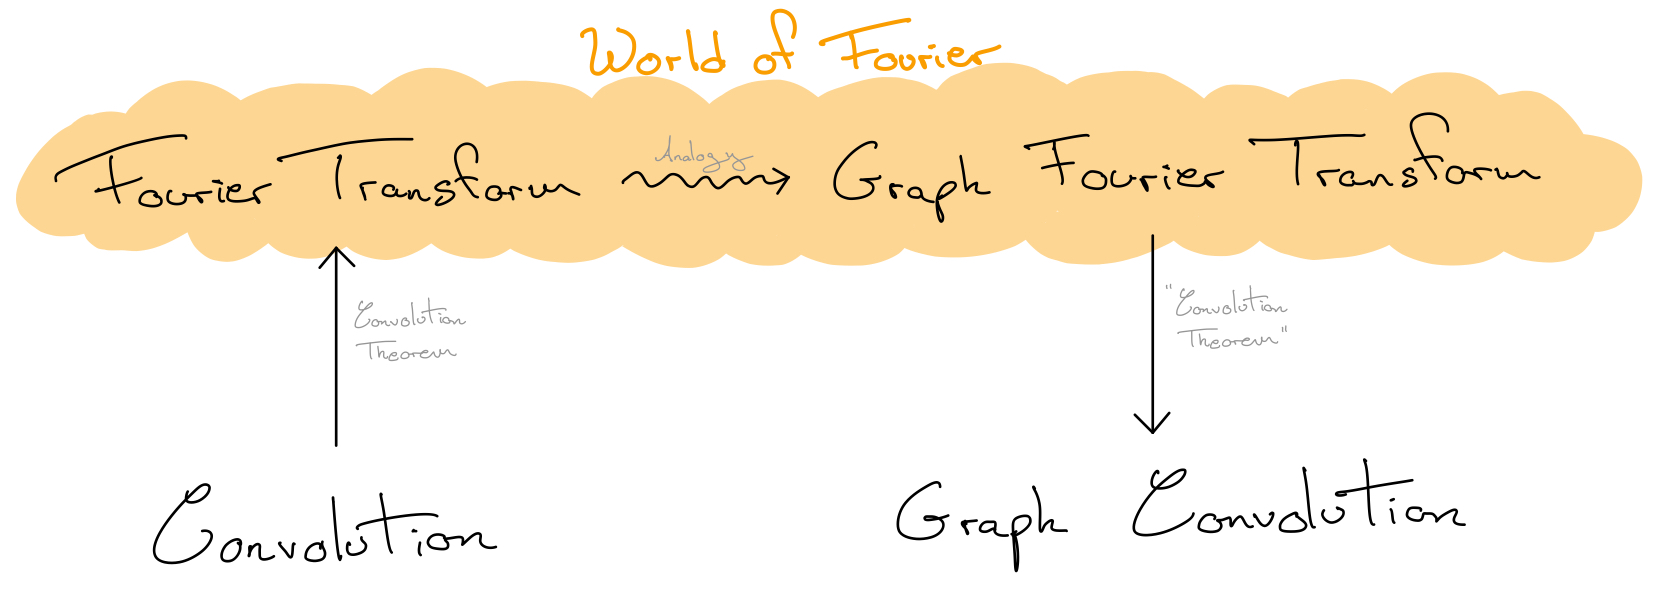 World of Fourier
Fourier Transform
Analogy
Graph Fourier Transform
Convolution
Theorem
"Convolution
Theorem"
Convolution
Graph Convolution